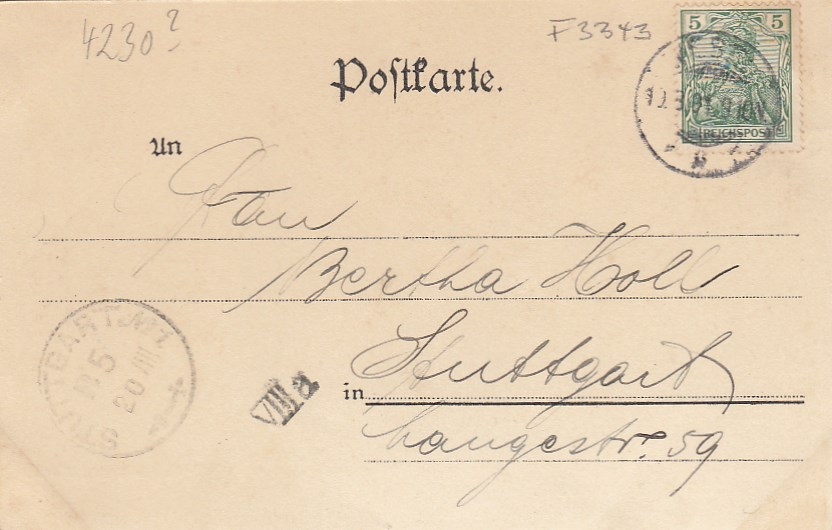 4230?
F3343
5 5
REICHSPOST
Postkarte.
An
Frau
Bertha Holl
Stuttgart
in
Langestr. 59
STUTTGART. Nº1
5
20
VIIIa